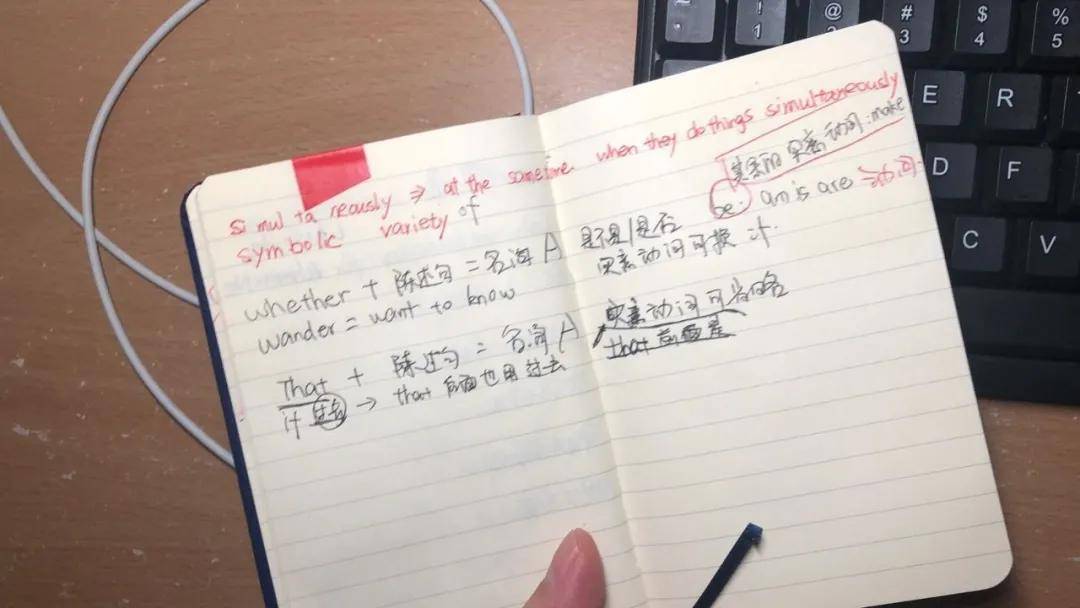 si mul ta neously ⇒ at the sametime. when they do things simultaneously
symbolic variety of
实意动词:make
be: am is are
whether + 陈述句 = 名词 A 是不是/是否
实意动词可换 if.
wander = want to know
That + 陈述句 = 名词 A 实意动词可省略
that 前面是
if 过去 → that 后面也用过去
@
!
1
2
#
3
$
4
%
5
E
R
D
F
C
V